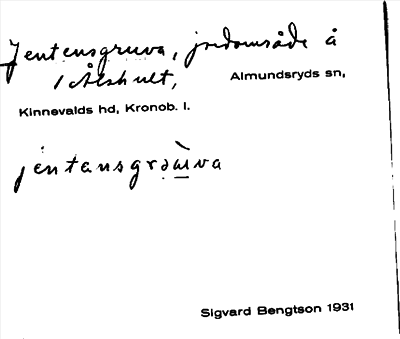 Jentensgruva, jordområde å
1 Åleshult, Almundsryds sn,
Kinnevalds hd, Kronob. l.
jèntansgrɯ̀va
Sigvard Bengtson 1931